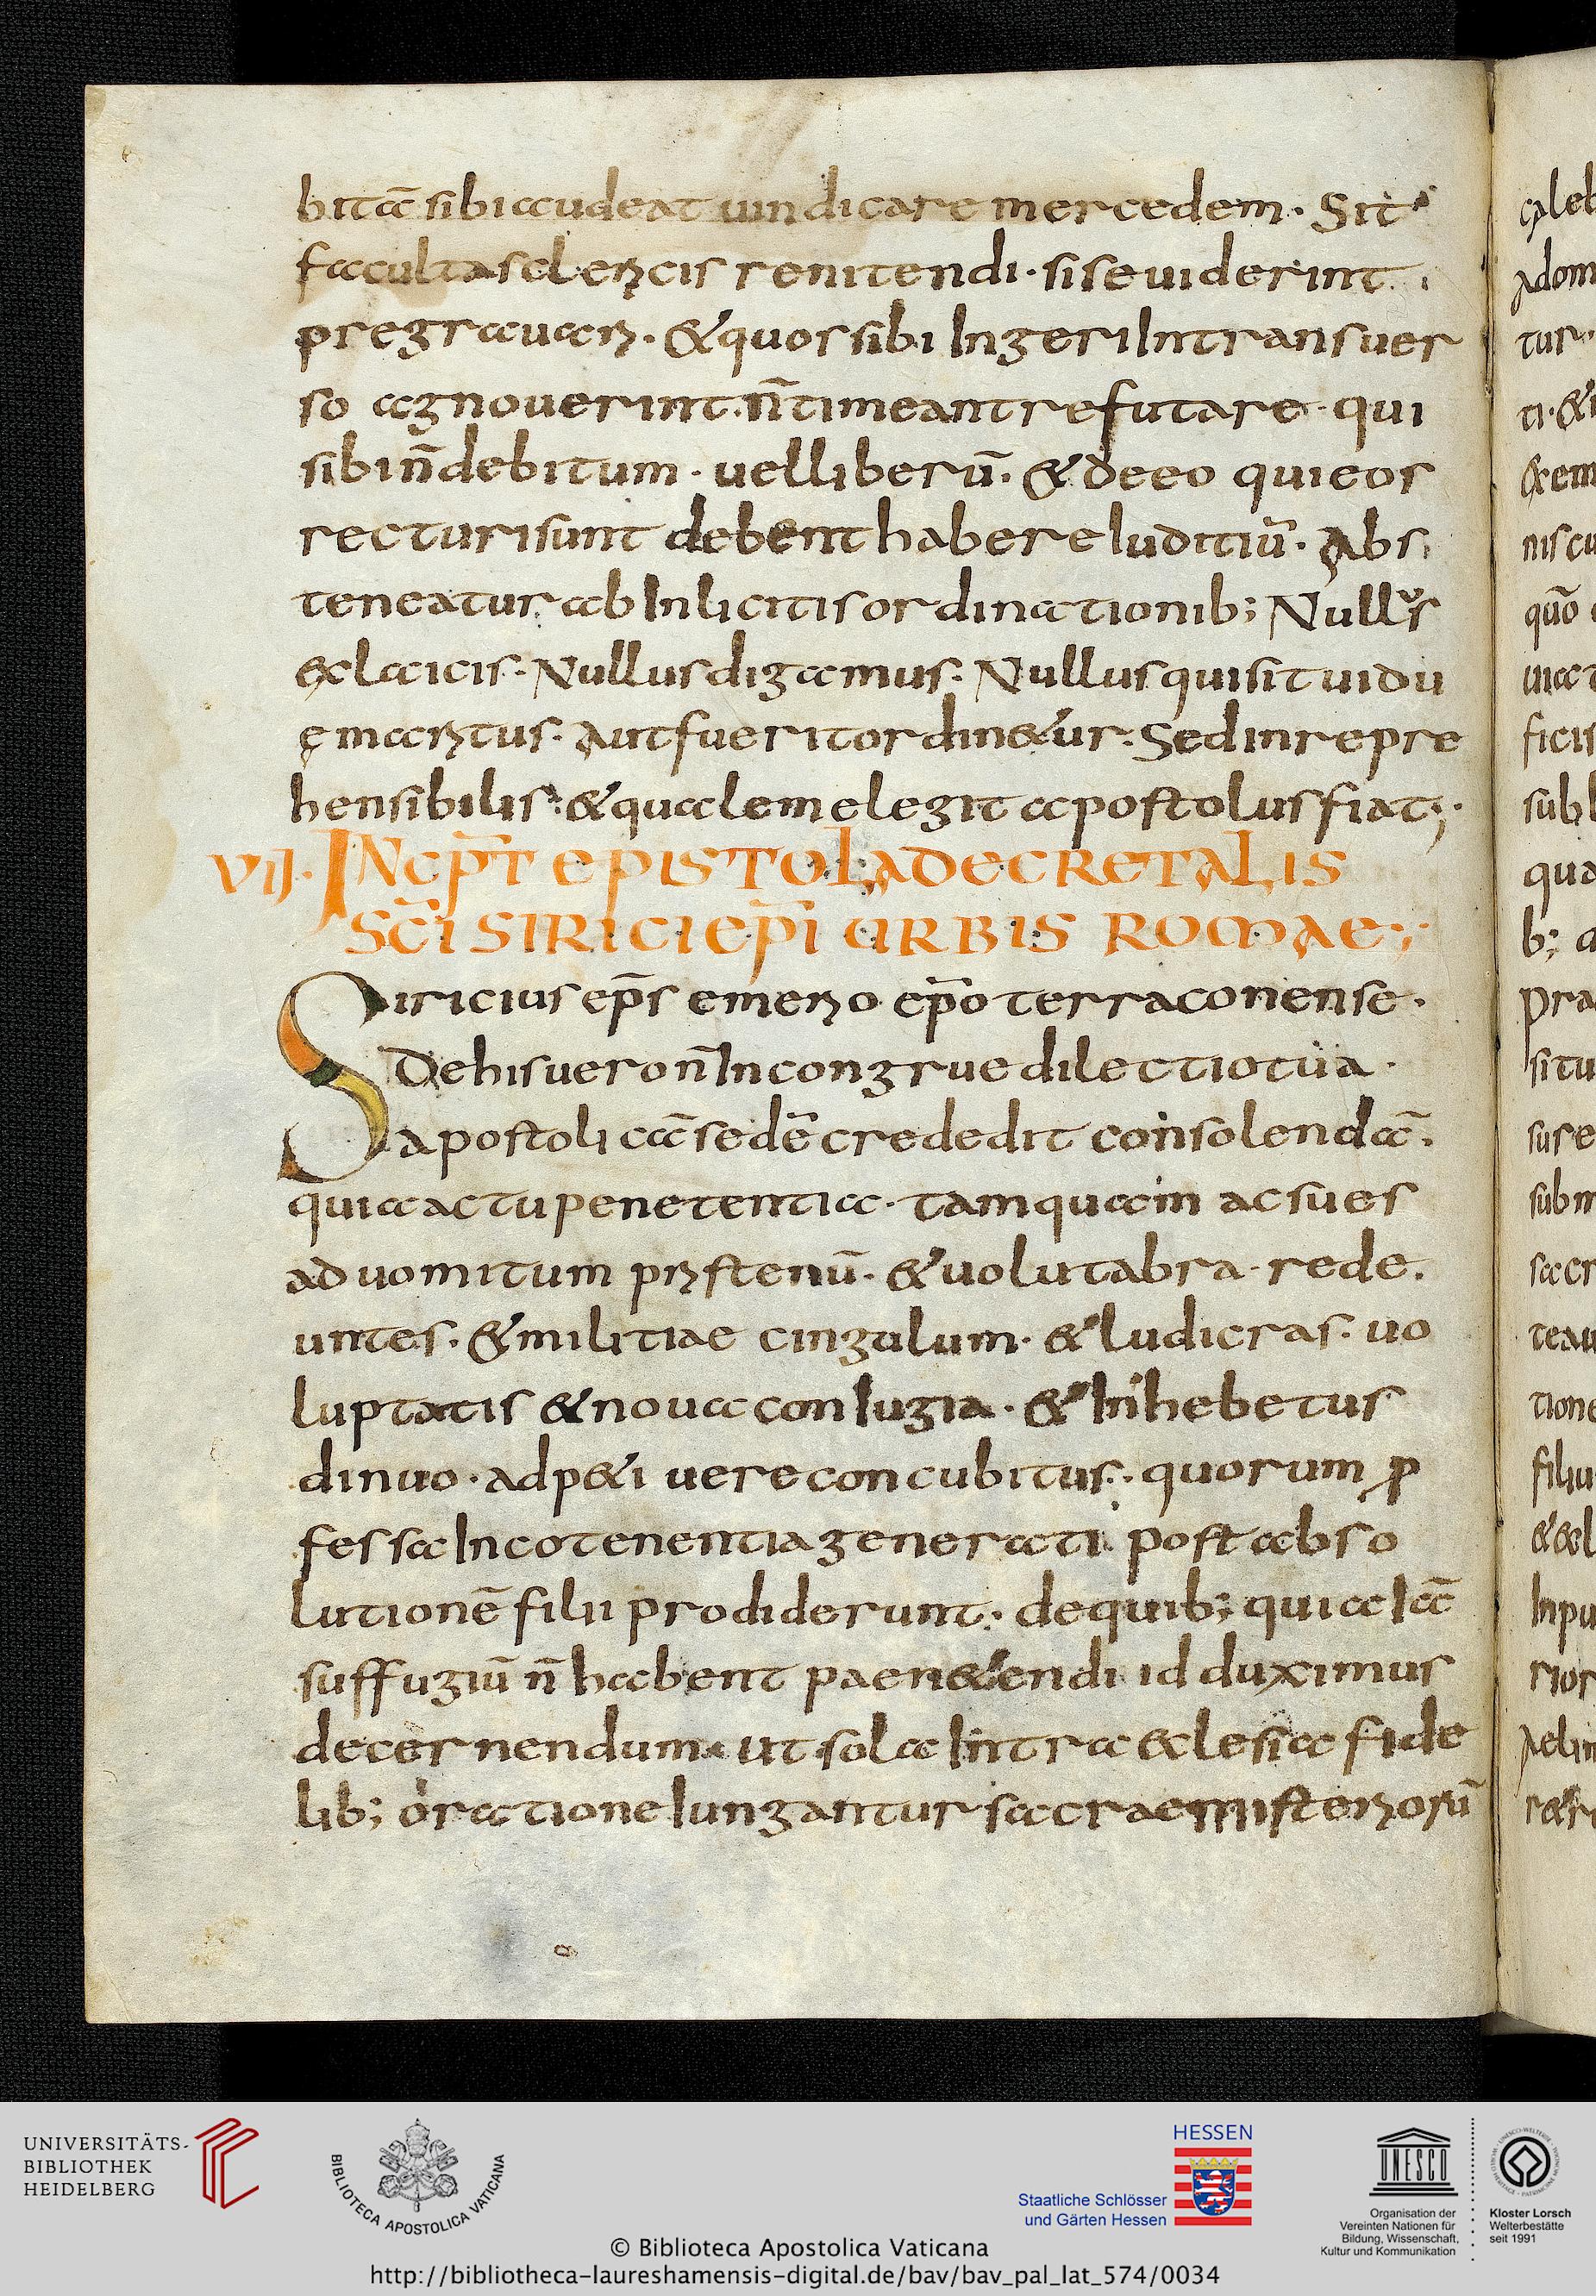 bitā sibi audeat uindicare mercedem. Sit
facultas clericis renitendi. si se uiderint
pregrauari. & quos sibi Ingeri Intransuer
so agnouerint. n̄ timeant refutare. qui
sibi n̄ debitum. uel liberū. & de eo qui eos
recturi sunt debent habere Iuditiū. Abs
teneatur ab Inlicitis ordinationib; Nullus
ex laicis. Nullus digamus. Nullus qui sit uidu
ę maritus. Aut fuerit ordin&ur. Sed inrepre
hensibilis. & qualem elegit apostolus fiat;
VIJ. INCP̄T EPISTOLA DECRETALIS
SC̄I SIRICI EP̄I URBIS ROMAE;
Siricius ep̄s emerio ep̄o terraconense.
De his uero n̄ Incongrue dilectio tua.
apostolicā sedē crededit consolendā.
qui a actu penetentia. tam quam ac sues
ad uomitum pristenū. & uolutabra. rede.
untes. & militiae cingulum. & ludicras. uo
luptatis & noua coniugia. & Inhebetus
dinuo. adp&iuere concubitus. quorum ꝓ
fessa Incotenentia generati post abso
lutionē filii prodiderunt. de quib; quia Iā
suffugiū n̄ habent paenitendi id duximus
decernendum. ut sola Intra eclesia fide
lib; oratione Iungantur sacrae misteriorū
cęleb
Adom
tur
ti. &
exem
nis cu
quō
uiat
ficis
subl
qua
b; a
pra
situ
sus e
subm
sacr
teau
tione
filiu
& &cl
Inpu
rior
Aelin
r&r
UNIVERSITÄTS-
BIBLIOTHEK
HEIDELBERG
BIBLIOTECA APOSTOLICA VATICANA
HESSEN
Staatliche Schlösser
und Gärten Hessen
UNESCO
Organisation der
Vereinten Nationen für
Bildung, Wissenschaft,
Kultur und Kommunikation
Kloster Lorsch
Welterbestätte
seit 1991
© Biblioteca Apostolica Vaticana
http://bibliotheca-laureshamensis-digital.de/bav/bav_pal_lat_574/0034